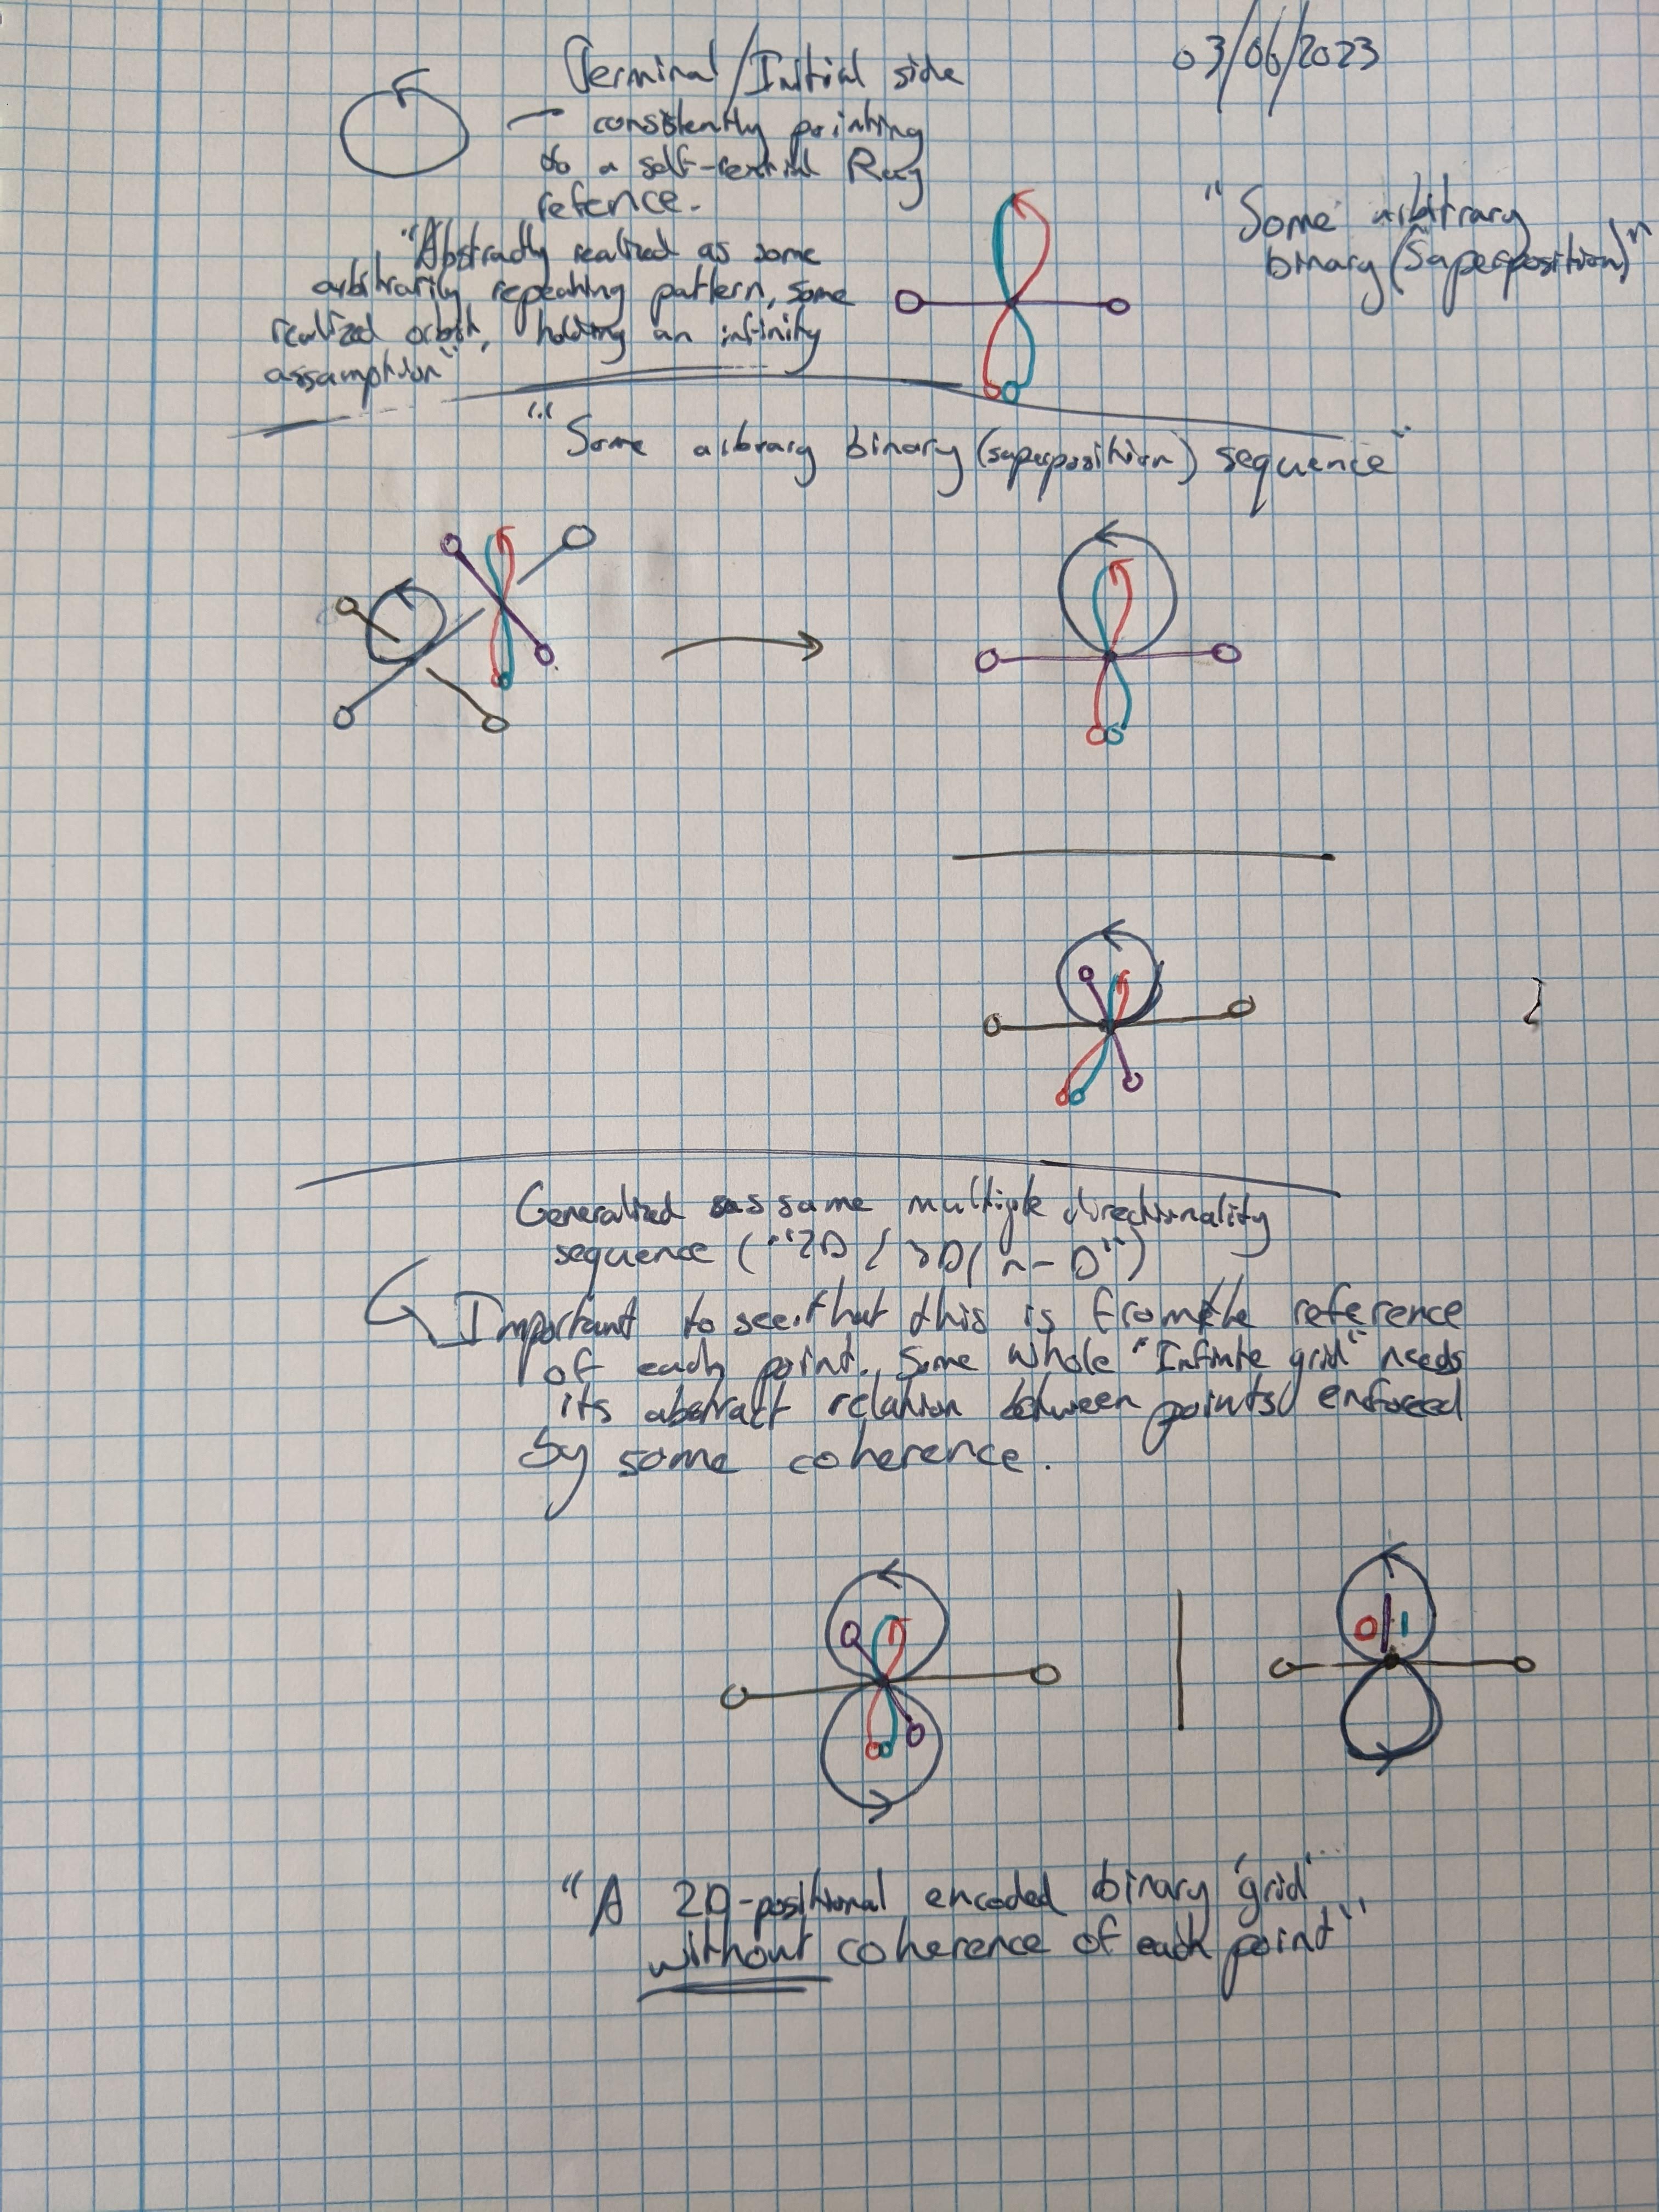 03/06/2023
Terminal/Initial side
— consistently pointing
to a self-                 Ray
refence.
"Some arbitrary
binary (Superposition)"
"Abstractly realized as some
arbitrarily repeating pattern, some
realized orbit, holding an infinity
assumption"
"Some arbitrary binary (superposition) sequence"
Generalized as some multiple directionality
sequence ("2D / 3D / n-D")
Important to see that this is from the reference
of each point. Some whole "Infinite grid" needs
its abstract relation between points enforced
by some coherence.
0 | 1
"A 2D-positional encoded binary 'grid'
without coherence of each point"